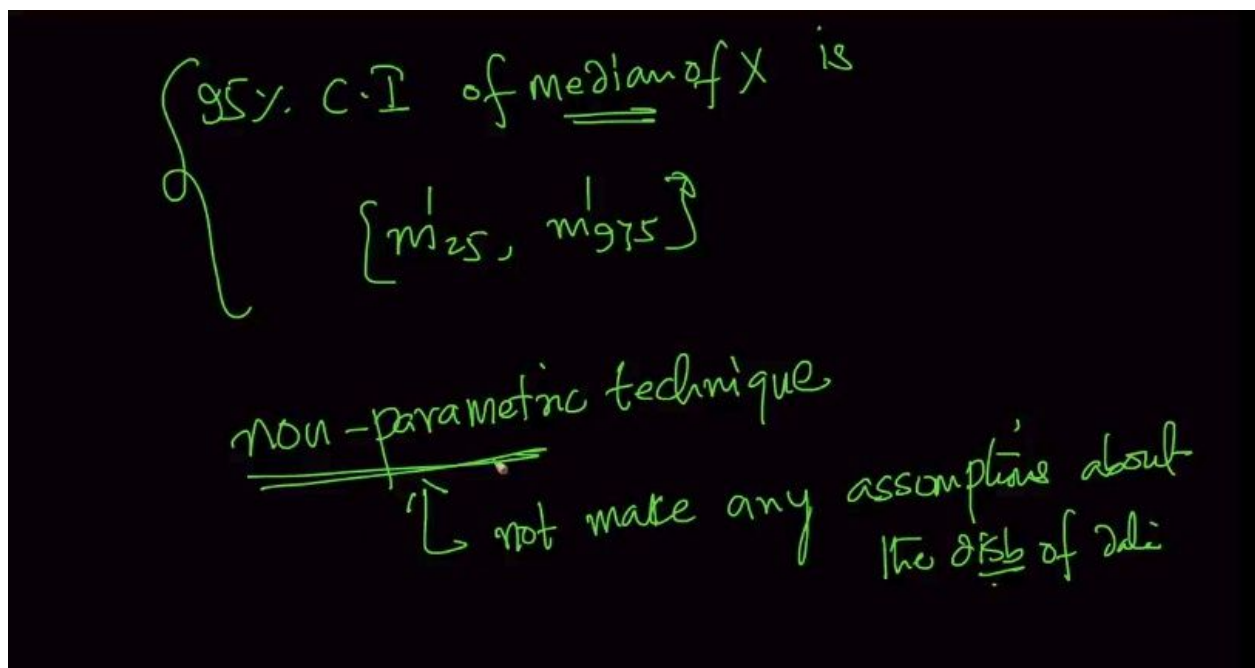 95%. C.I of median of X is
[m'25, m'975]
non-parametric technique
↳ not make any assumptions about
the disb of data